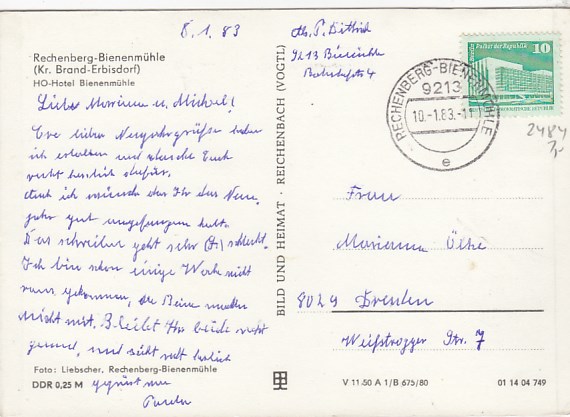 8.1.83
Rechenberg-Bienenmühle
(Kr. Brand-Erbisdorf)
HO-Hotel Bienenmühle
Liebe Marianne u. Michael!
Eure lieben Neujahrsgrüße habe
ich erhalten und danke Euch
recht herzlich dafür.
Auch ich wünsche das Ihr das Neue
jahr gut angefangen habt.
Das schreiben geht sehr schlecht.
Ich bin schon einige Wochen nicht
raus gekommen, die Beine machen
nicht mit. Bleibt Ihr beide recht
gesund, und seid recht herzlich
gegrüßt von
Foto: Liebscher, Rechenberg-Bienenmühle
DDR 0,25 M
BILD UND HEIMAT · REICHENBACH (VOGTL)
Abs. P. Dittrich
9213 Bienmühle
Bahnhofstr 4
RECHENBERG-BIENENMÜHLE
9213
10.-1.83.-11
e
Palast der Republik
10
2484
7,-
Frau
Marianne
8029 Dresden
Weißtropper Str. 7
V 11-50 A 1/B 675/80
01 14 04 749